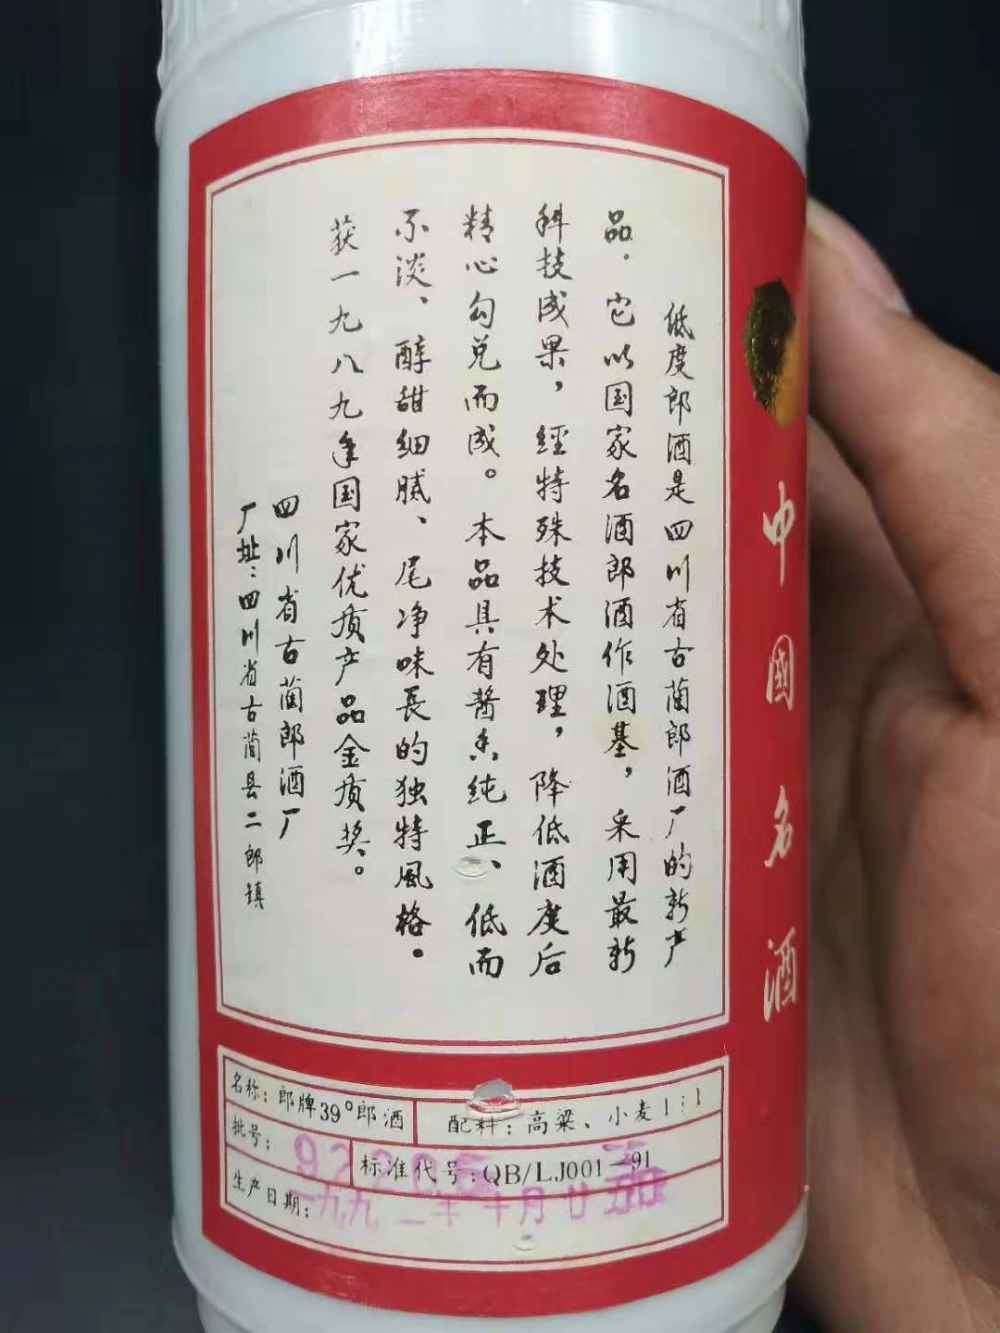 低度郎酒是四川省古蔺郎酒厂的新产
品．它以国家名酒郎酒作酒基，采用最新
科技成果，經特殊技术处理，降低酒度后
精心勾兑而成。本品具有酱香纯正、低而
不淡、醇甜细腻、尾净味長的独特風格。
获一九八九年国家优质产品金质奖。
四川省古蔺郎酒厂
厂址：四川省古蔺县二郎镇
中國名酒
名称：郎牌39°郎酒
配料：高粱、小麦1:1
批号：
标准代号：QB/LJ001-91
生产日期：